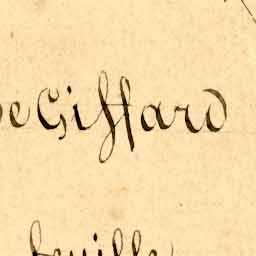 de Giffard
feuille